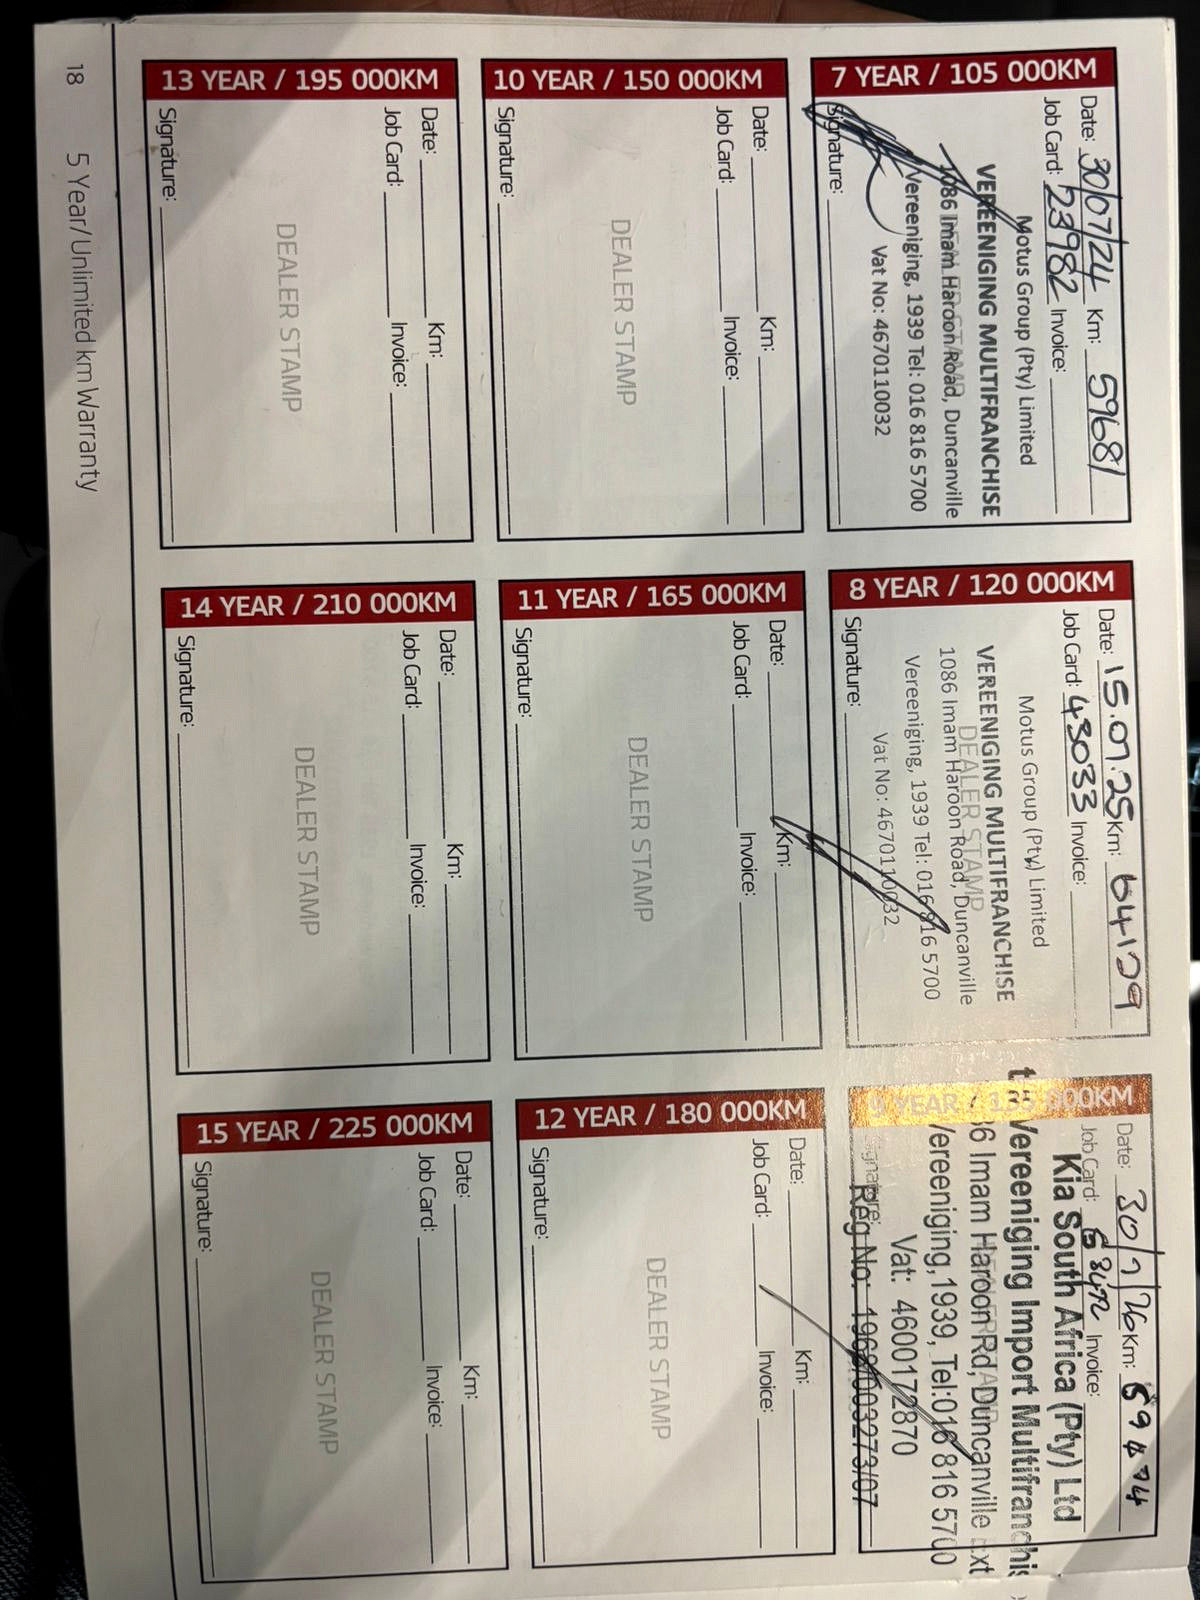 7 YEAR / 105 000KM
Date: 30/07/24 Km: 59681
Job Card: 23982 Invoice:
Motus Group (Pty) Limited
VEREENIGING MULTIFRANCHISE
1086 Imam Haroon Road, Duncanville
Vereeniging, 1939 Tel: 016 816 5700
Vat No: 4670110032
Signature:
8 YEAR / 120 000KM
Date: 15.07.25 Km: 64129
Job Card: 43033 Invoice:
Motus Group (Pty) Limited
VEREENIGING MULTIFRANCHISE
DEALER STAMP
1086 Imam Haroon Road, Duncanville
Vereeniging, 1939 Tel: 016 816 5700
Vat No: 4670110032
Signature:
9 YEAR / 135 000KM
Date: 30/7/26 Km:
Job Card: Invoice:
Kia South Africa (Pty) Ltd
Vereeniging Import Multifranchis
86 Imam Haroon Rd, Duncanville Ext
Vereeniging, 1939, Tel:016 816 5700
Vat: 4600172870
Reg No: 1968/003273/07
Signature:
10 YEAR / 150 000KM
Date: Km:
Job Card: Invoice:
DEALER STAMP
Signature:
11 YEAR / 165 000KM
Date: Km:
Job Card: Invoice:
DEALER STAMP
Signature:
12 YEAR / 180 000KM
Date: Km:
Job Card: Invoice:
DEALER STAMP
Signature:
13 YEAR / 195 000KM
Date: Km:
Job Card: Invoice:
DEALER STAMP
Signature:
14 YEAR / 210 000KM
Date: Km:
Job Card: Invoice:
DEALER STAMP
Signature:
15 YEAR / 225 000KM
Date: Km:
Job Card: Invoice:
DEALER STAMP
Signature:
18 5 Year/Unlimited km Warranty